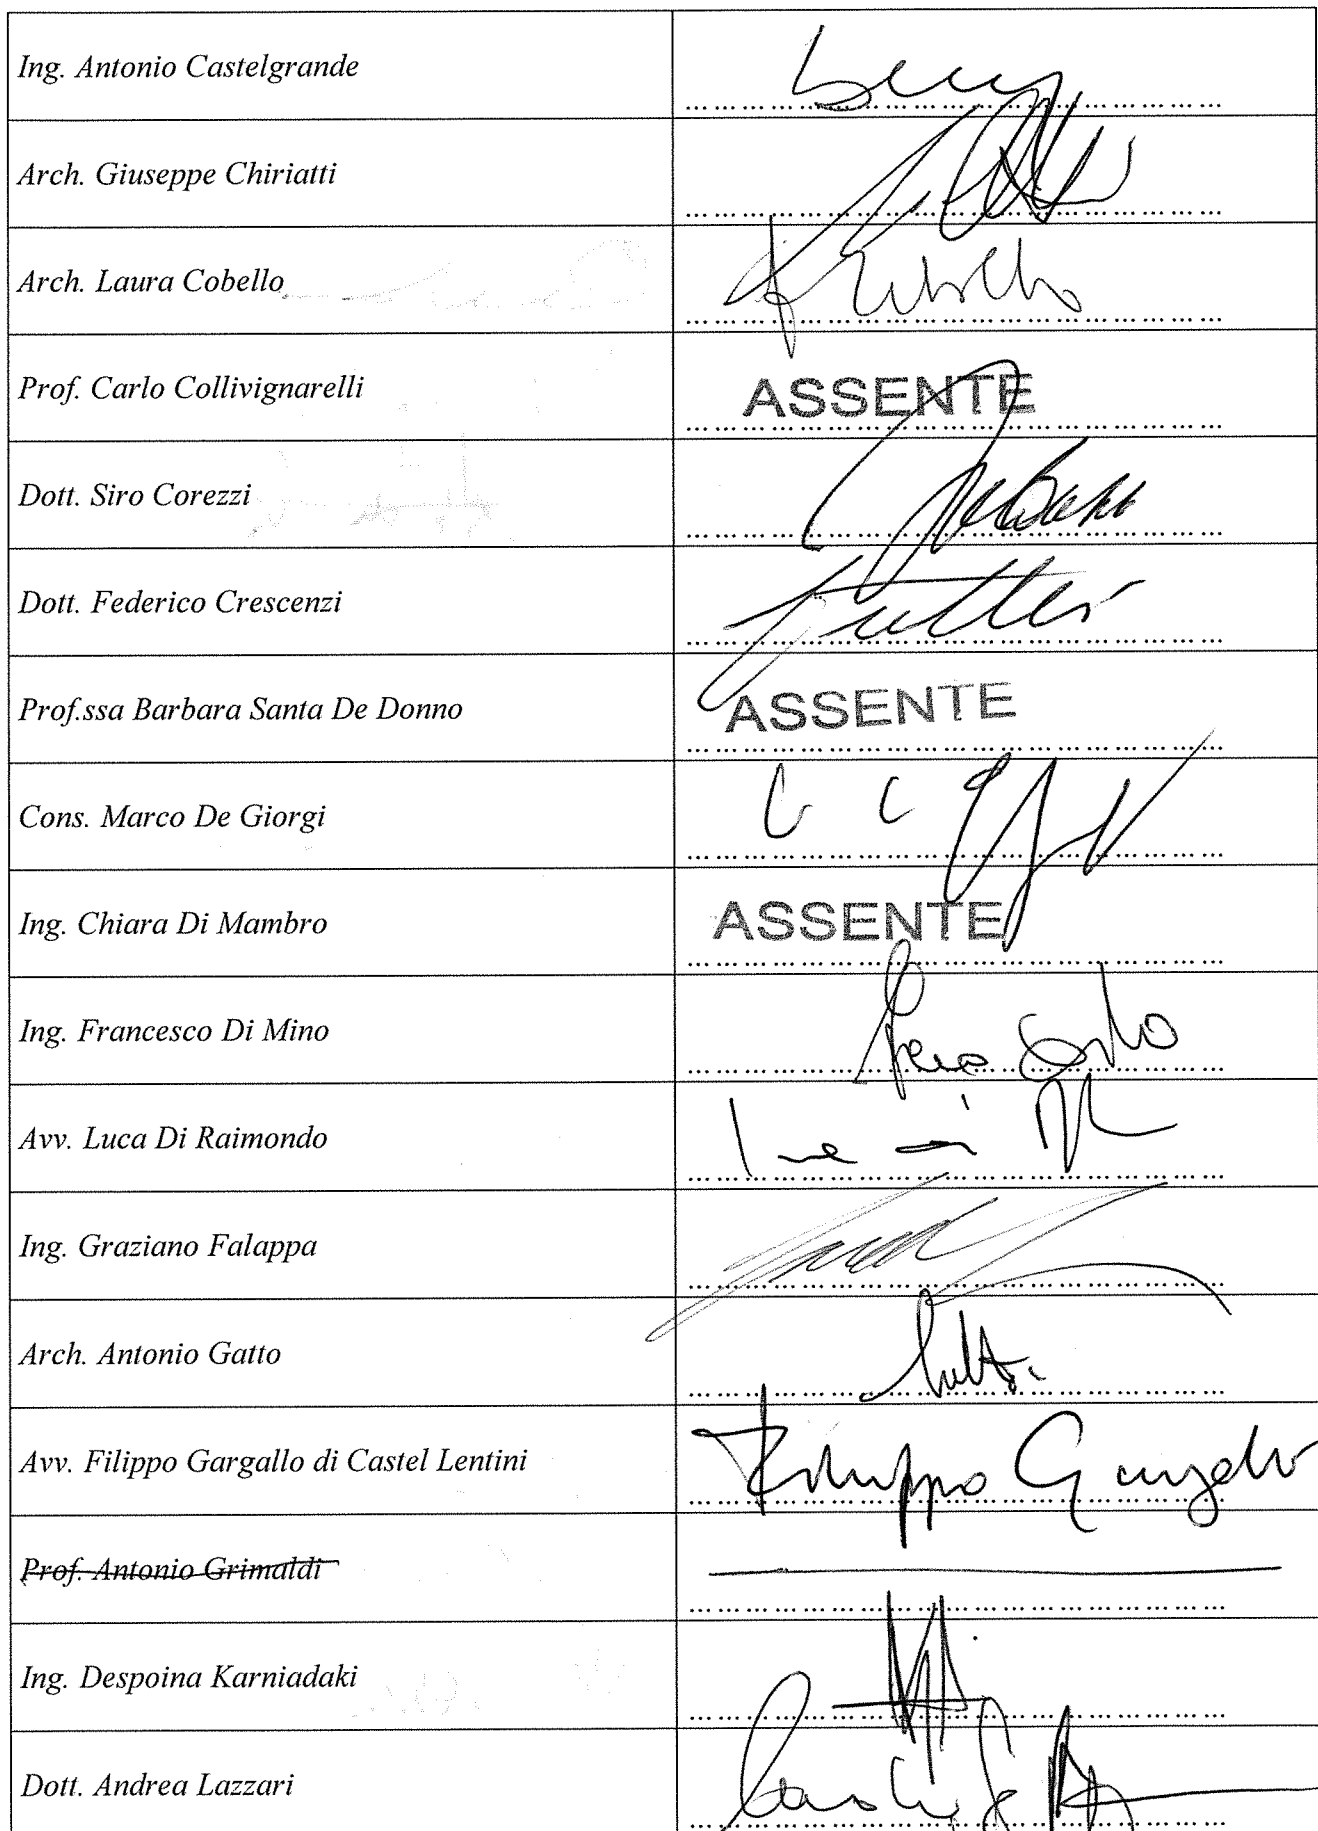 Ing. Antonio Castelgrande
Arch. Giuseppe Chiriatti
Arch. Laura Cobello
Prof. Carlo Collivignarelli ASSENTE
Dott. Siro Corezzi
Dott. Federico Crescenzi
Prof.ssa Barbara Santa De Donno ASSENTE
Cons. Marco De Giorgi
Ing. Chiara Di Mambro ASSENTE
Ing. Francesco Di Mino
Avv. Luca Di Raimondo
Ing. Graziano Falappa
Arch. Antonio Gatto
Avv. Filippo Gargallo di Castel Lentini Filippo Gargallo
Prof. Antonio Grimaldi
Ing. Despoina Karniadaki
Dott. Andrea Lazzari